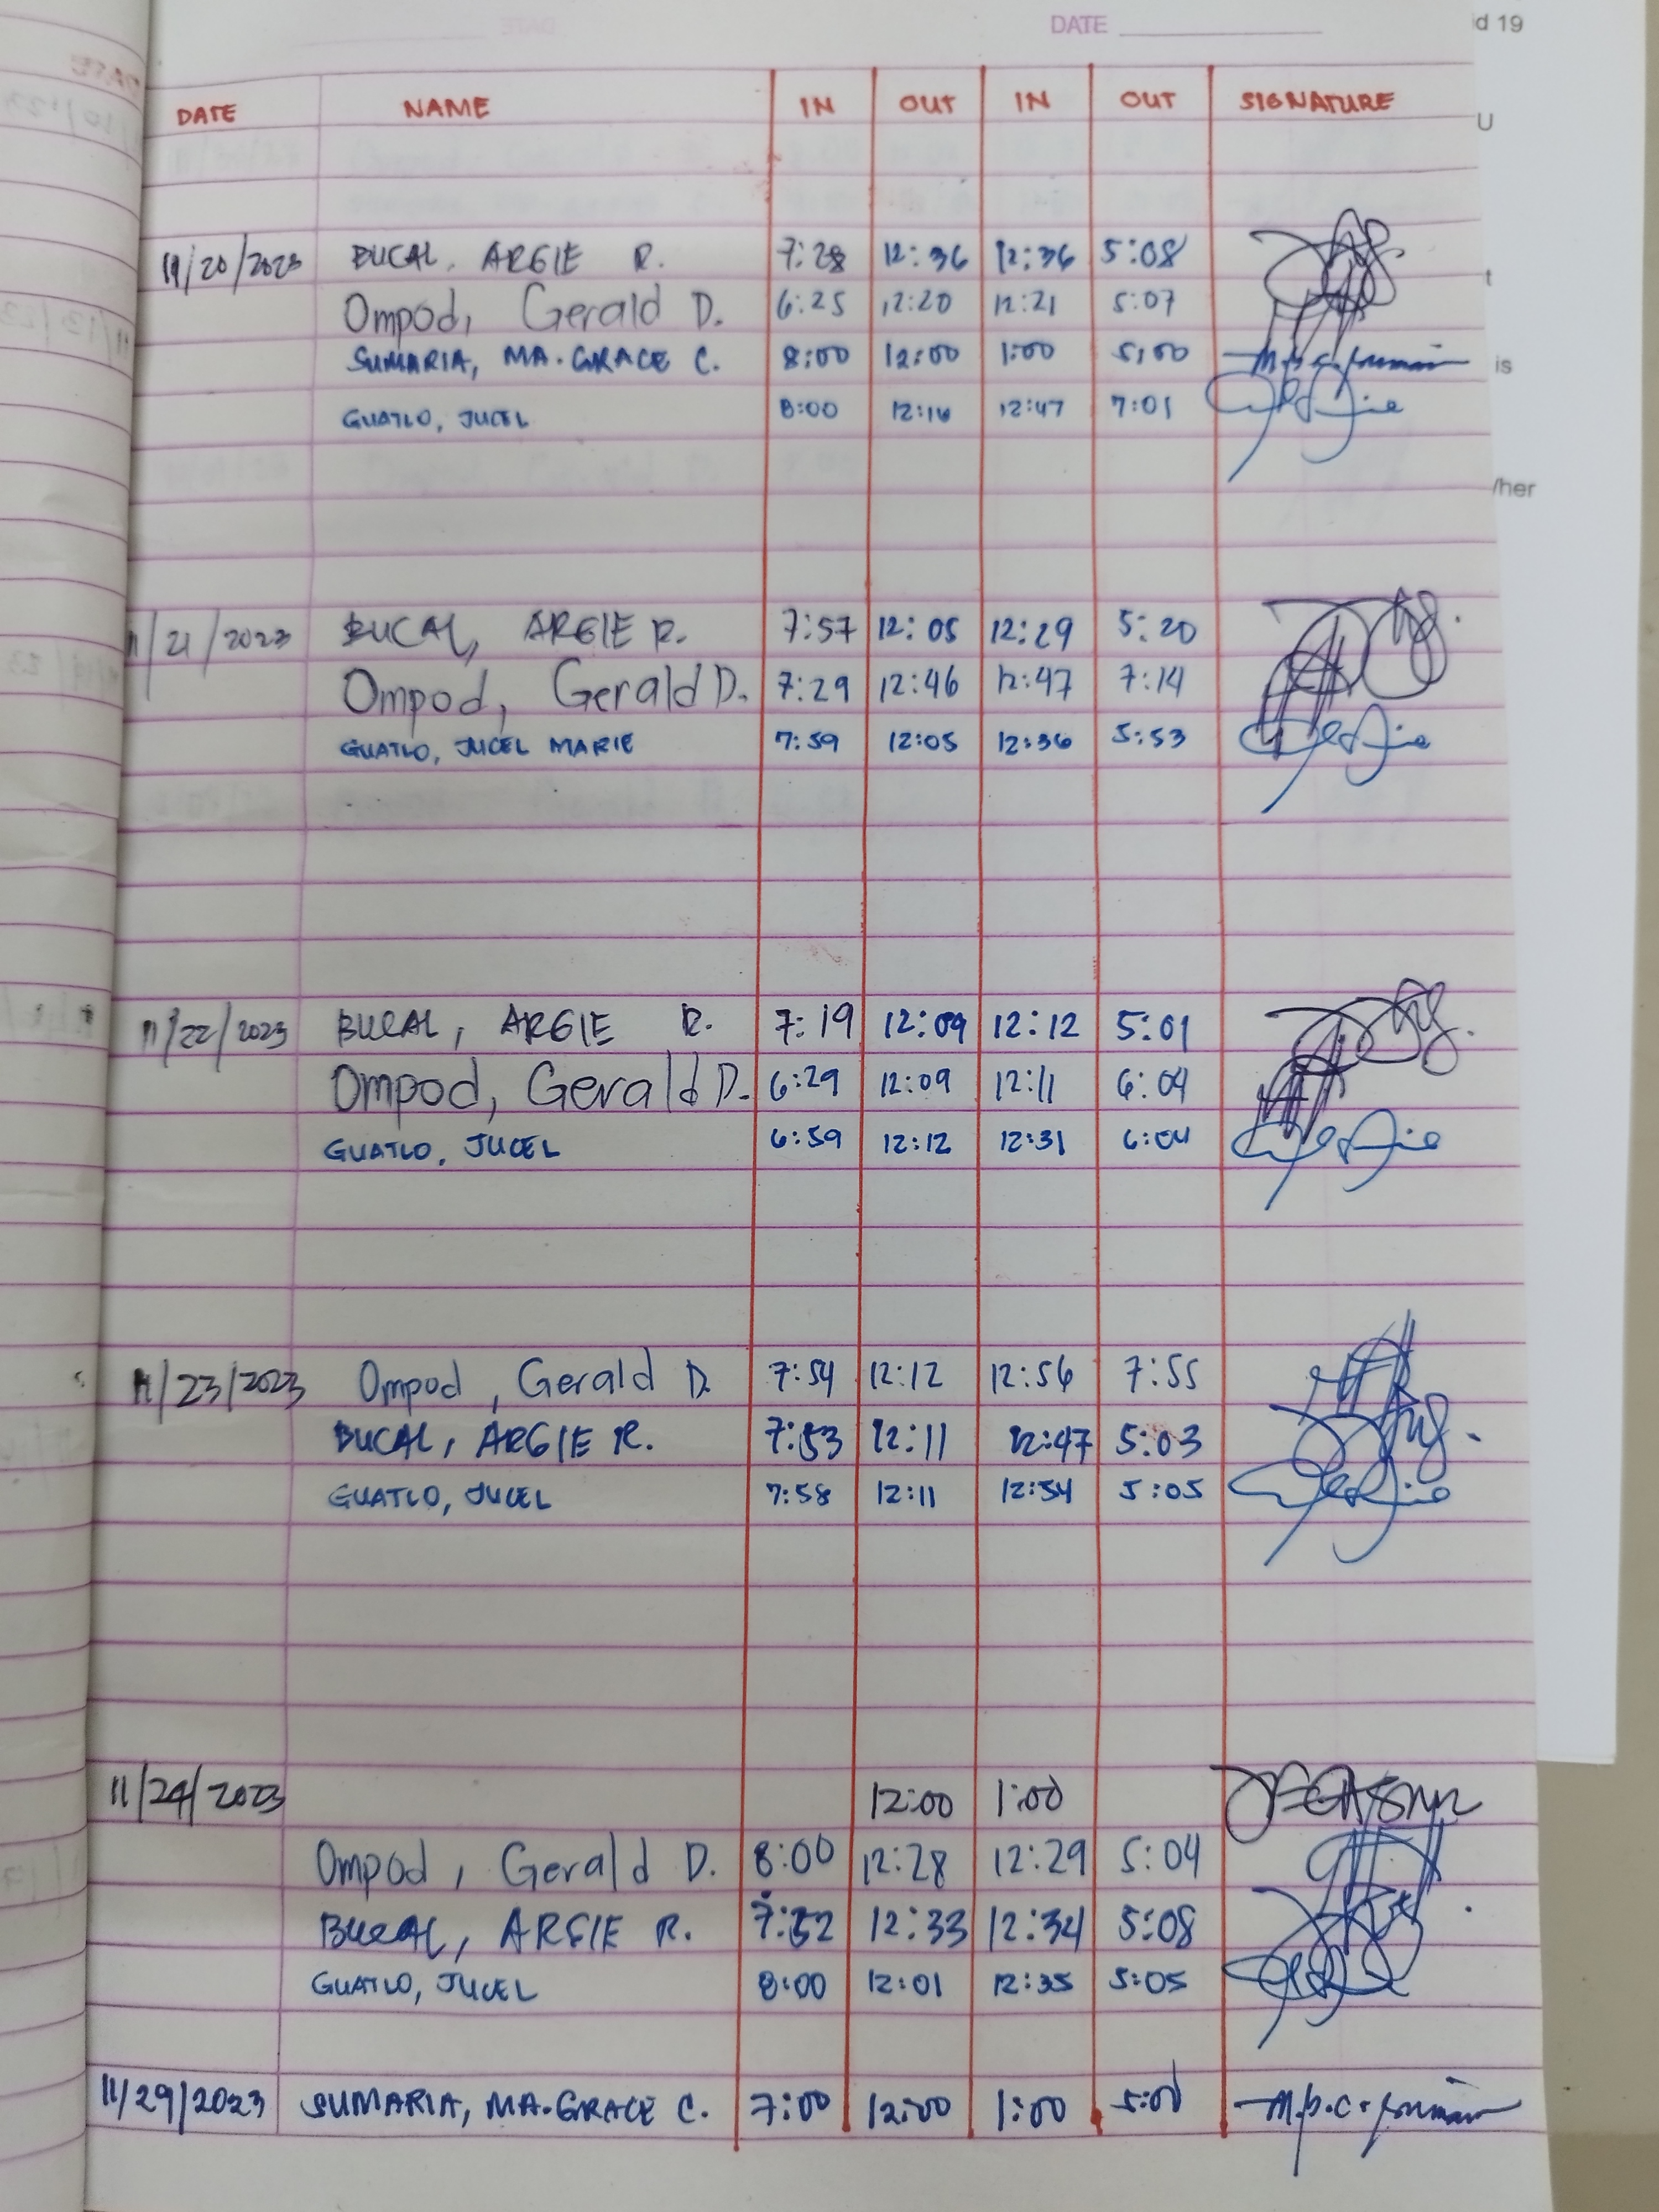 DATE
d 19
DATE NAME IN OUT IN OUT SIGNATURE
U
11/20/2023 BUCAL, ARGIE R. 7:28 12:36 12:36 5:08
t
Ompod, Gerald D. 6:25 12:20 12:21 5:07
SUMARIA, MA. GRACE C. 8:00 12:00 1:00 5:00
is
GUATLO, JUCEL 8:00 12:16 12:47 7:01
/her
11/21/2023 BUCAL, ARGIE R. 7:57 12:05 12:29 5:20
Ompod, Gerald D. 7:29 12:46 12:47 7:14
GUATLO, JUCEL MARIE 7:59 12:05 12:36 5:53
11/22/2023 BUCAL, ARGIE R. 7:19 12:09 12:12 5:01
Ompod, Gerald D. 6:29 12:09 12:11 6:04
GUATLO, JUCEL 6:59 12:12 12:31 6:04
11/23/2023 Ompod, Gerald D. 7:54 12:12 12:56 7:55
BUCAL, ARGIE R. 7:53 12:11 12:47 5:03
GUATLO, JUCEL 7:58 12:11 12:54 5:05
11/24/2023 12:00 1:00
Ompod, Gerald D. 8:00 12:28 12:29 5:04
BUCAL, ARGIE R. 7:52 12:33 12:34 5:08
GUATLO, JUCEL 8:00 12:01 12:35 5:05
11/29/2023 SUMARIA, MA. GRACE C. 7:00 12:00 1:00 5:00